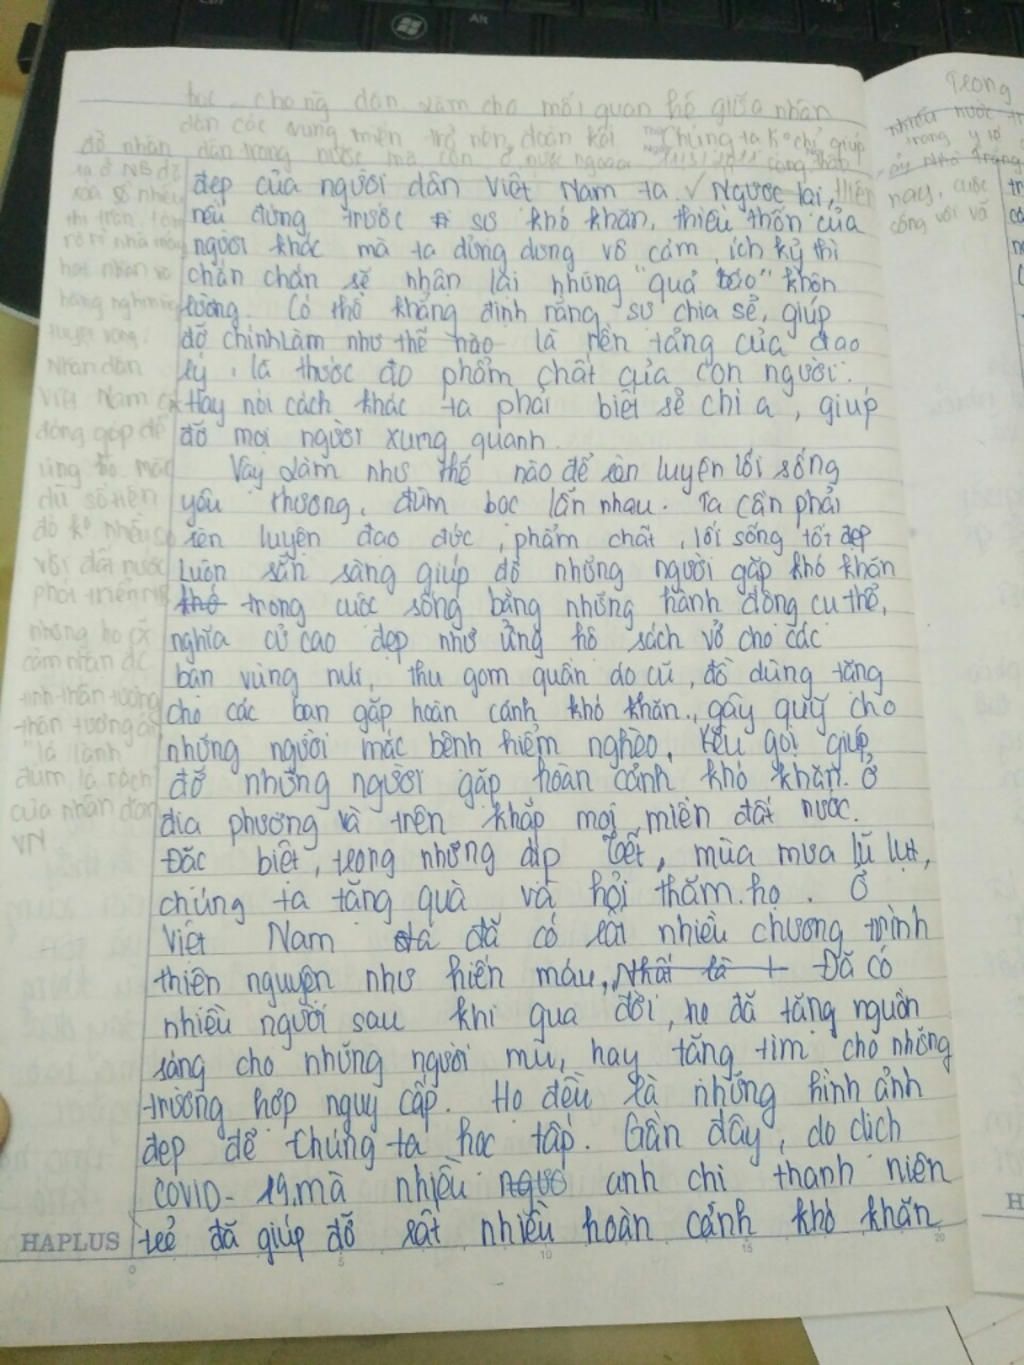 học. cho nhân dân làm cho mối quan hệ giữa nhân
dân các vùng miền trở nên đoàn kết Chúng ta k° chỉ giúp
đỡ nhân dân trong nước mà còn ở nước ngoài
đẹp của người dân Việt Nam ta. Ngược lại,
nếu đứng trước sự khó khăn, thiếu thốn của
người khác mà ta dửng dưng vô cảm, ích kỷ thì
chắn chắn sẽ nhận lại những "quả báo" khôn
lường. Có thể khẳng định rằng sự chia sẻ, giúp
đỡ chính làm như thế nào là nền tảng của đạo
lý, là thước đo phẩm chất của con người.
Hay nói cách khác ta phải biết sẻ chi a, giúp
đỡ mọi người xung quanh.
Vậy làm như thế nào để rèn luyện lối sống
yêu thương, đùm bọc lẫn nhau. Ta cần phải
rèn luyện đạo đức, phẩm chất, lối sống tốt đẹp
Luôn sẵn sàng giúp đỡ những người gặp khó khăn
khó trong cuộc sống bằng những hành động cụ thể,
nghĩa cử cao đẹp như ủng hộ sách vở cho các
bạn vùng núi, thu gom quần áo cũ, đồ dùng tặng
cho các bạn gặp hoàn cảnh khó khăn, gây quỹ cho
những người mắc bệnh hiểm nghèo, kêu gọi giúp
đỡ những người gặp hoàn cảnh khó khăn ở
địa phương và trên khắp mọi miền đất nước.
Đặc biệt, trong những dịp Tết, mùa mưa lũ lụt,
chúng ta tặng quà và hỏi thăm họ. Ở
Việt Nam đã có rất nhiều chương trình
thiện nguyện như hiến máu, Nhất là Đã có
nhiều người sau khi qua đời, họ đã tặng nguồn
sáng cho những người mù, hay tặng tim cho những
trường hợp nguy cấp. Họ đều là những hình ảnh
đẹp để chúng ta học tập. Gần đây, do dịch
COVID-19 mà nhiều người anh chị thanh niên
trẻ đã giúp đỡ rất nhiều hoàn cảnh khó khăn
ta ở NB đã
hạt nhân
Nhân dân
Việt Nam
đóng góp để
ủng hộ mặc
dù số tiền
đó k° nhiều
với đất nước
phát triển
nhưng họ
cảm nhận đc
tinh thần tương
thân tương ái
"lá lành
đùm lá rách"
của nhân dân
VN
HAPLUS
0 5 10 15 20
Trong
nhiều nước
trong y tế
nay, cuộc
cống với vã
H